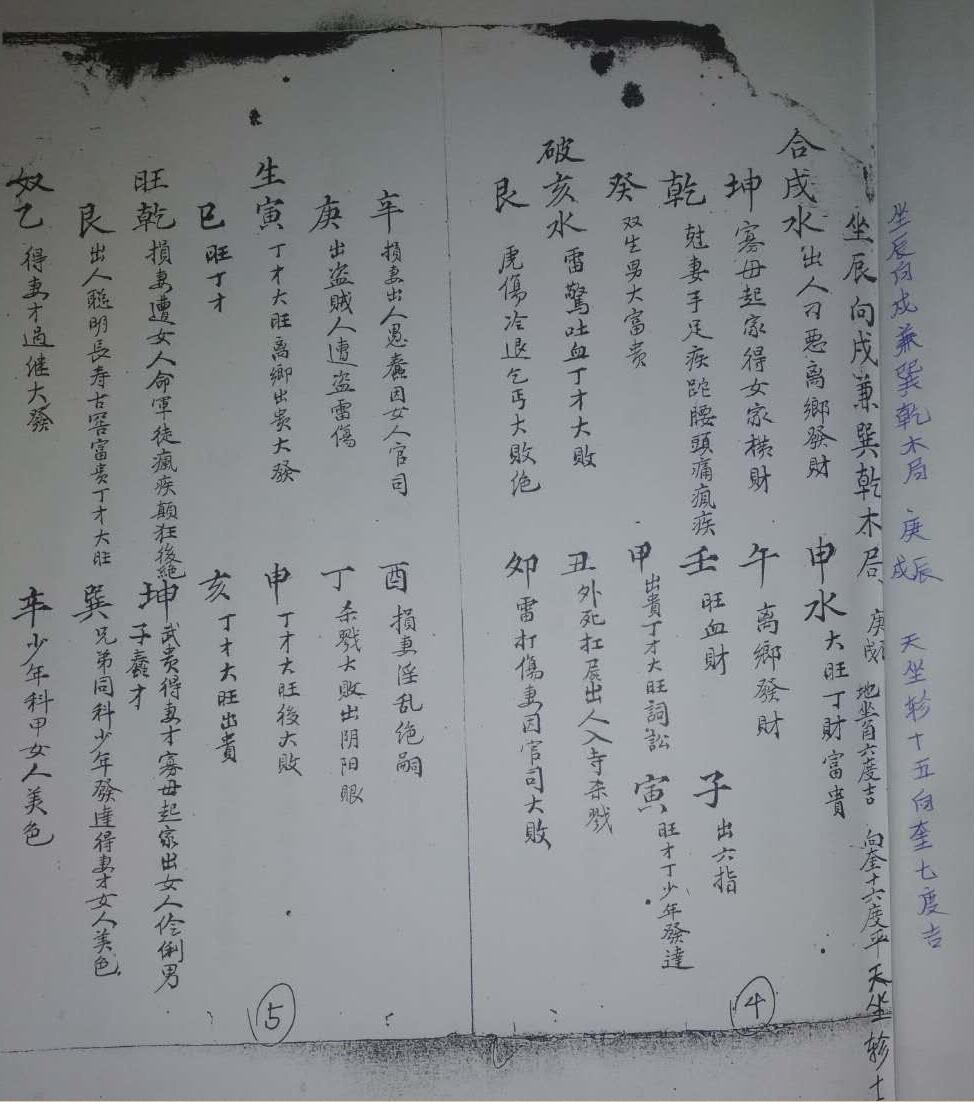 坐辰向戍兼巽乾木局 庚辰 庚戍 天坐轸十五向奎七度吉
坐辰向戍兼巽乾木局 庚辰 庚戍 地坐角六度吉 向奎十六度平天坐轸十
合戍水出人刃悪离鄉發財
申水大旺丁財富貴
坤寡母起家得女家横財
午离鄉發財
乾尅妻手足疾跎腰頭痛瘋疾
壬旺血財
子出六指
癸双生男大富贵
甲出貴丁才大旺詞訟
寅旺才丁少年發達
破亥水雷驚吐血丁才大敗
丑外死扛屍出人入寺杀戮
艮虎傷冷退乞丐大敗绝
卯雷打傷妻因官司大敗
④
辛損妻出人愚蠢因女人官司
酉損妻淫乱绝嗣
庚出盗賊人遭盗雷傷
丁杀戮大敗出阴阳眼
生寅丁才大旺离鄉出贵大發
申丁才大旺後大敗
巳旺丁才
亥丁才大旺出貴
旺乾損妻遭女人命軍徒瘋疾顛狂後絶
坤武贵得妻才寡母起家出女人伶俐男子蠢才
艮出人聪明長寿古窖富贵丁才大旺
巽兄弟同科少年發達得妻才女人美色.
奴乙得妻才過继大發
辛少年科甲女人美色
⑤